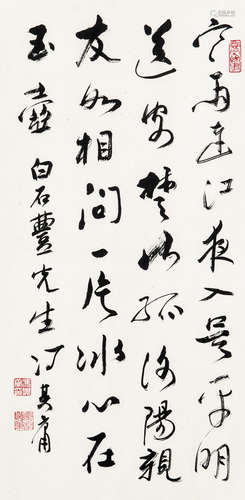 寒雨连江夜入吴平明
送客楚山孤洛阳亲
友如相问一片冰心在
玉壶 白石丰先生 冯其庸